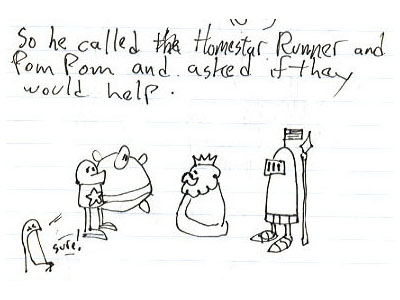 So he called the Homestar Runner and
Pom Pom and asked if they
would help.
sure!